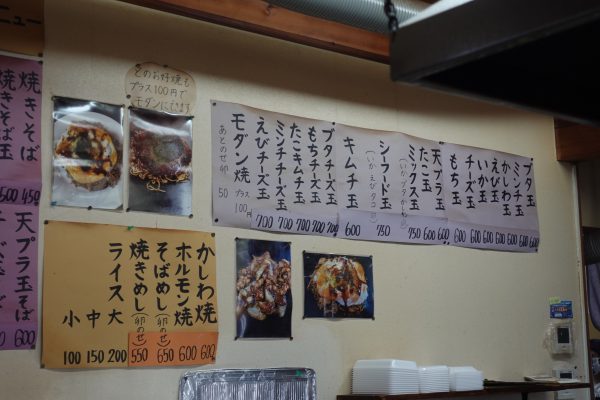 ニュー
焼きそば 450
焼きそば玉 500
天プラ玉そば
600
どのお好焼も
プラス100円で
モダンにできます
ブタ玉 600
ミンチ玉 600
かしわ玉 600
いか玉 600
えび玉 600
チーズ玉 600
もち玉 600
天プラ玉 600
たこ玉 600
ミックス玉 750
(いかブタかしわ)
シーフード玉 750
(いかえびタコ)
キムチ玉 600
ブタチーズ玉 700
もちチーズ玉 700
たこキムチ玉 700
ミンチチーズ玉 700
えびチーズ玉 700
モダン焼 プラス100円
あとのせ卵 50
かしわ焼 600
ホルモン焼 600
そばめし(卵のせ) 650
焼きめし(卵のせ) 550
ライス 大 200
中 150
小 100